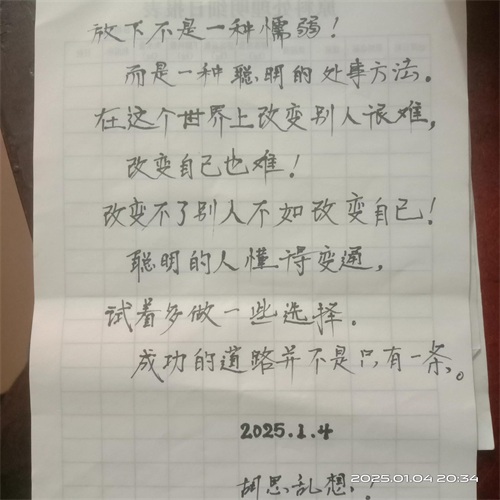 放下不是一种懦弱！
而是一种聪明的处事方法。
在这个世界上改变别人很难，
改变自己也难！
改变不了别人不如改变自己！
聪明的人懂得变通，
试着多做一些选择．
成功的道路并不是只有一条，。
2025.1.4
胡思乱想，！
2025.01.04 20:34